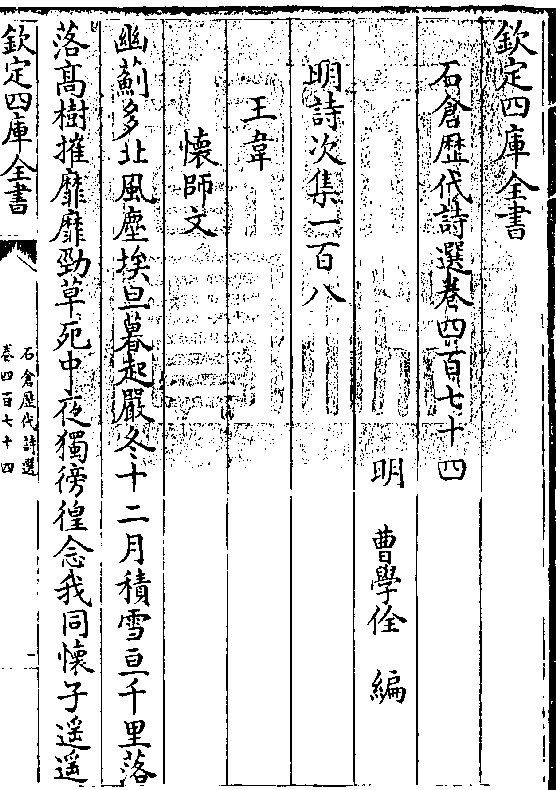 欽定四庫全書
石倉歴代詩選卷四百七十四
明 曹學佺 編
明詩次集一百八
王韋
懷師文
幽薊多北風塵埃旦暮起嚴冬十二月積雪亘千里落
落髙樹摧靡靡勁草死中夜獨徬徨念我同懷子遥遥
欽定四庫全書
石倉歴代詩選
卷四百七十四
一